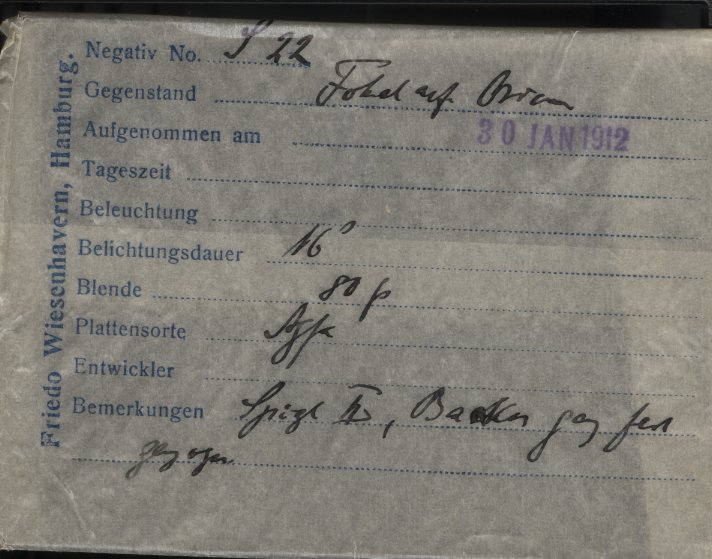 Friedo Wiesenhavern, Hamburg.
Negativ No. S 22
Gegenstand Fokal auf Orion
Aufgenommen am 30 JAN 1912
Tageszeit
Beleuchtung
Belichtungsdauer
Blende 80
Plattensorte Agfa
Entwickler
Bemerkungen Spiegel II, Backen ganz fest